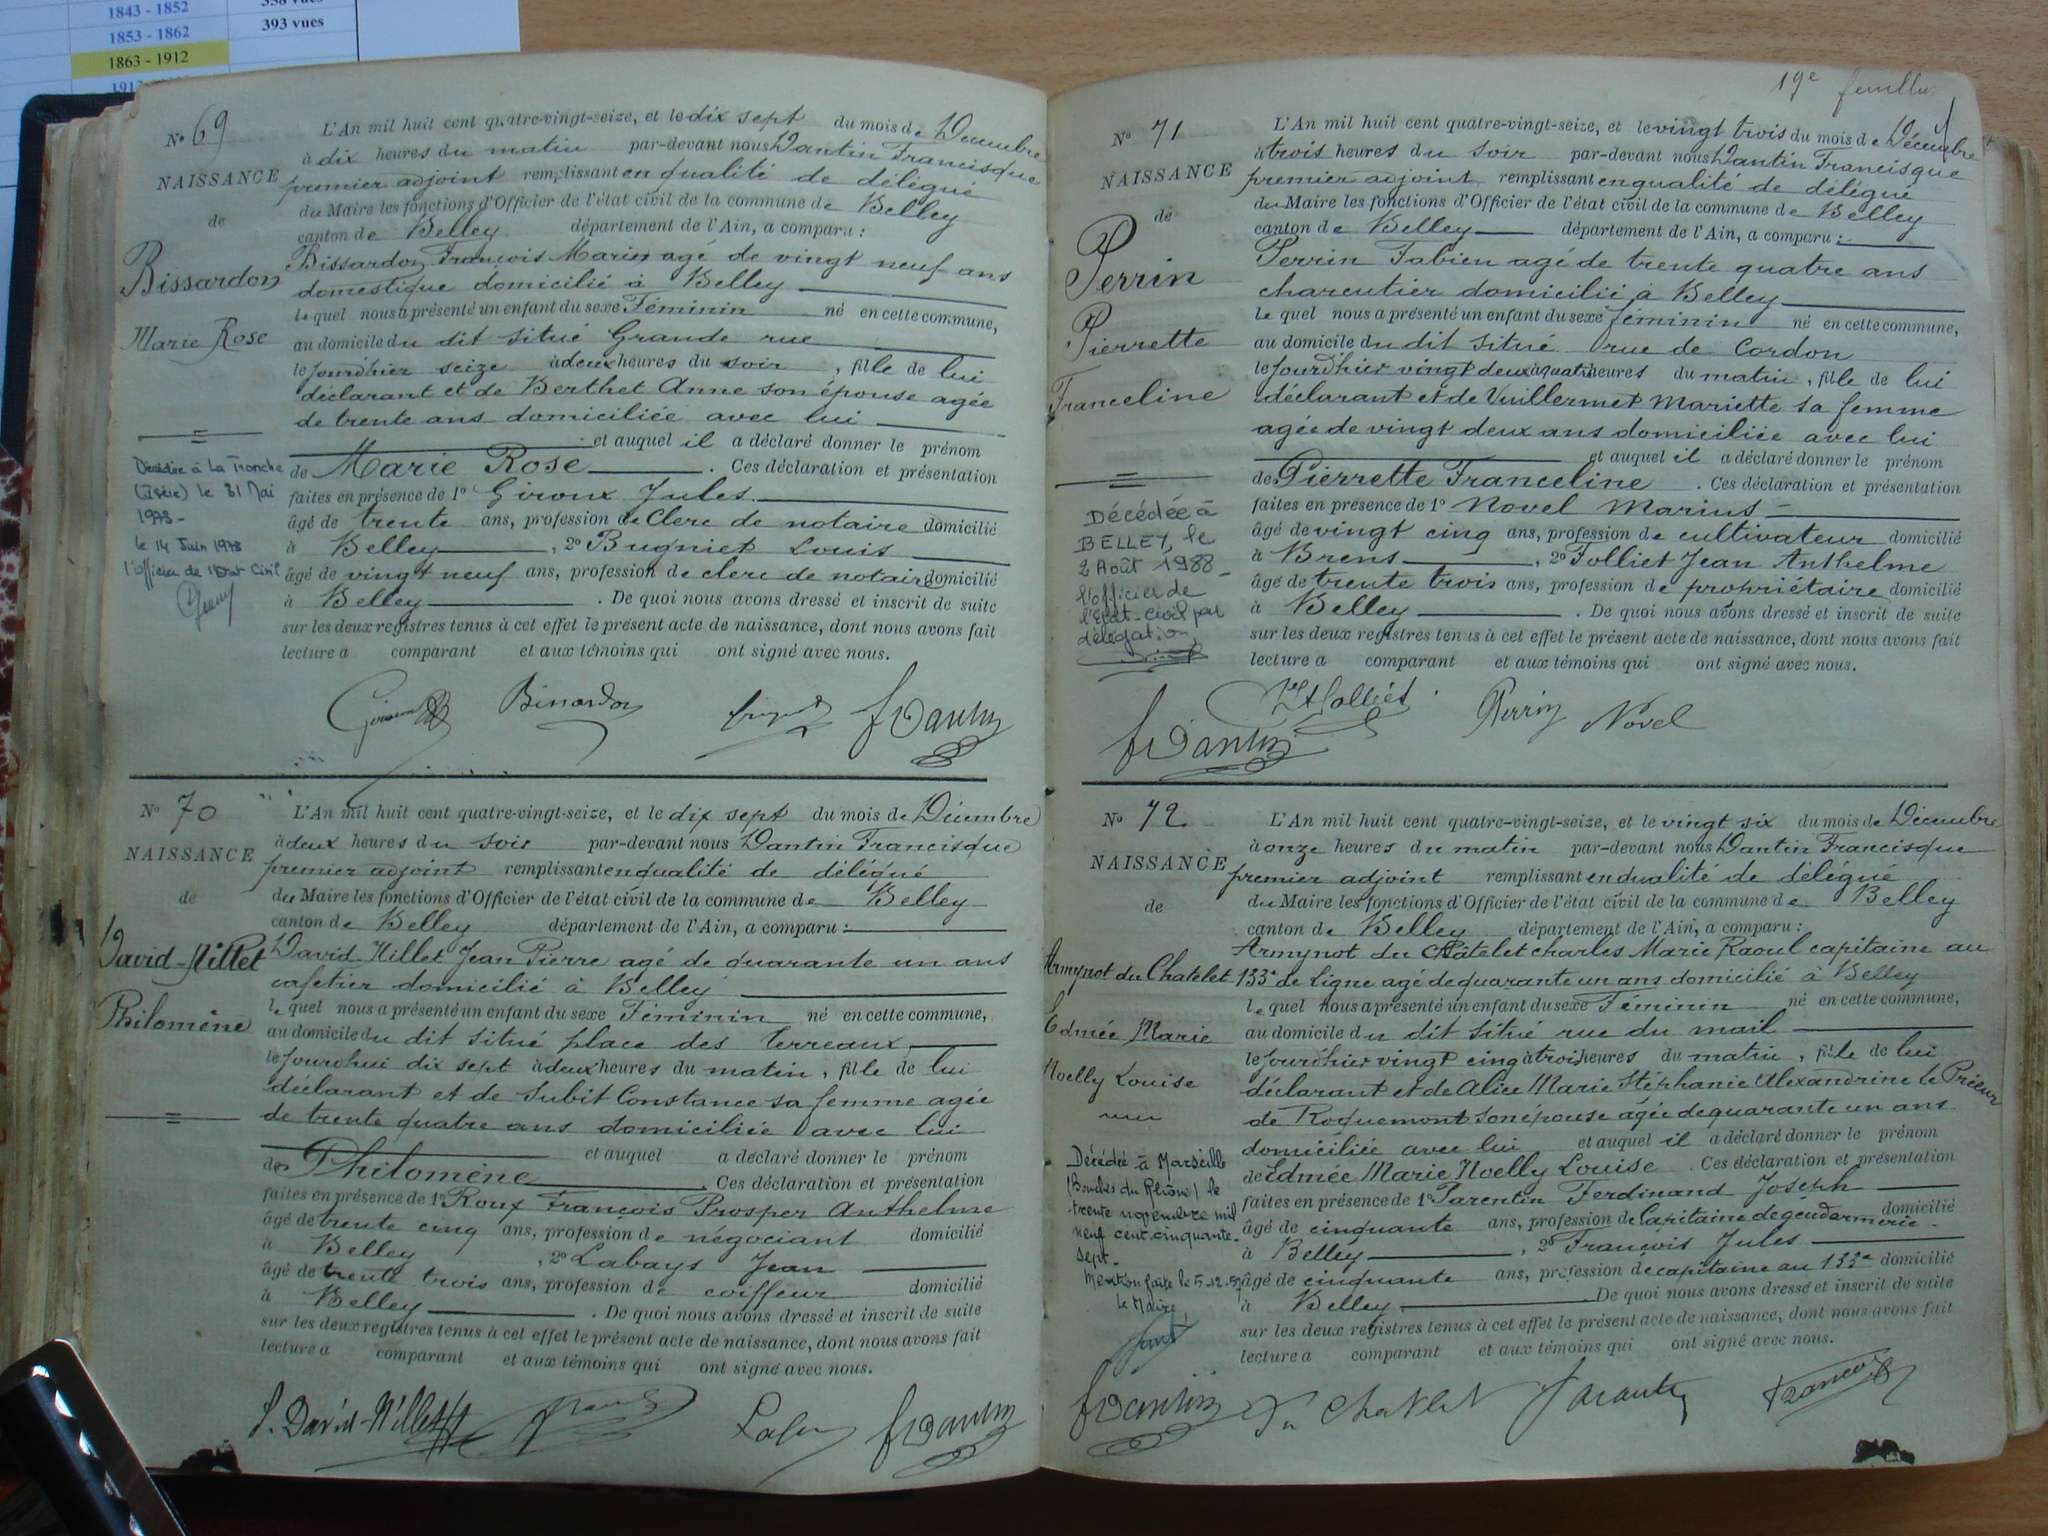 1843 - 1852
1853 - 1862
393 vues
1863 - 1912
N° 69
NAISSANCE
de
Bissardon
Marie Rose
Décédée à La Tronche
(Isère) le 31 Mai
1973 -
le 14 Juin 1973
l'officier de l'Etat Civil
L'An mil huit cent quatre-vingt-seize, et le dix sept du mois de Décembre
à dix heures du matin par-devant nous Dantin Francisque
premier adjoint remplissant en qualité de délégué
du Maire les fonctions d'Officier de l'état civil de la commune de Belley
canton de Belley département de l'Ain, a comparu :
Bissardon François Marie agé de vingt neuf ans
domestique domicilié à Belley
lequel nous a présenté un enfant du sexe Féminin né en cette commune,
au domicile du dit situé Grande rue
le jourdhier seize à deux heures du soir, fille de lui
déclarant et de Berthet Anne son épouse agée
de trente ans domiciliée avec lui
et auquel il a déclaré donner le prénom
de Marie Rose. Ces déclaration et présentation
faites en présence de 1° Giroux Jules
âgé de trente ans, profession de Clerc de notaire domicilié
à Belley, 2° Bugniet Louis
âgé de vingt neuf ans, profession de clerc de notaire domicilié
à Belley. De quoi nous avons dressé et inscrit de suite
sur les deux registres tenus à cet effet le présent acte de naissance, dont nous avons fait
lecture a comparant et aux témoins qui ont signé avec nous.
Bissardon FDantin
N° 70
NAISSANCE
de
David-Nillet
Philomène
L'An mil huit cent quatre-vingt-seize, et le dix sept du mois de Décembre
à deux heures du soir par-devant nous Dantin Francisque
premier adjoint remplissant en qualité de délégué
du Maire les fonctions d'Officier de l'état civil de la commune de Belley
canton de Belley département de l'Ain, a comparu :
David-Nillet Jean Pierre agé de quarante un ans
cafetier domicilié à Belley
lequel nous a présenté un enfant du sexe Féminin né en cette commune,
au domicile du dit situé place des Terreaux
le jourdhui dix sept à deux heures du matin, fille de lui
déclarant et de Subit Constance sa femme agée
de trente quatre ans domiciliée avec lui
et auquel a déclaré donner le prénom
de Philomène. Ces déclaration et présentation
faites en présence de 1° Roux François Prosper Anthelme
âgé de trente cinq ans, profession de négociant domicilié
à Belley, 2° Labays Jean
âgé de trente trois ans, profession de coiffeur domicilié
à Belley. De quoi nous avons dressé et inscrit de suite
sur les deux registres tenus à cet effet le présent acte de naissance, dont nous avons fait
lecture a comparant et aux témoins qui ont signé avec nous.
P. David-Nillet FDantin
19e feuillet
N° 71
NAISSANCE
de
Perrin
Pierrette
Franceline
Décédée à
BELLEY, le
2 Août 1988
l'officier de
l'Etat-civil par
délégation,
L'An mil huit cent quatre-vingt-seize, et le vingt trois du mois de Décembre
à trois heures du soir par-devant nous Dantin Francisque
premier adjoint remplissant en qualité de délégué
du Maire les fonctions d'Officier de l'état civil de la commune de Belley
canton de Belley département de l'Ain, a comparu :
Perrin Fabien agé de trente quatre ans
charcutier domicilié à Belley
lequel nous a présenté un enfant du sexe féminin né en cette commune,
au domicile du dit situé rue de Cordon
le jourdhier vingt deux à quatre heures du matin, fille de lui
déclarant et de Vuillermet Mariette sa femme
agée de vingt deux ans domiciliée avec lui
et auquel il a déclaré donner le prénom
de Pierrette Franceline. Ces déclaration et présentation
faites en présence de 1° Novel Marius
âgé de vingt cinq ans, profession de cultivateur domicilié
à Brens, 2° Folliet Jean Anthelme
âgé de trente trois ans, profession de propriétaire domicilié
à Belley. De quoi nous avons dressé et inscrit de suite
sur les deux registres tenus à cet effet le présent acte de naissance, dont nous avons fait
lecture a comparant et aux témoins qui ont signé avec nous.
Perrin Novel
FDantin
N° 72
NAISSANCE
de
Armynot du Chatelet
Edmée Marie
Noelly Louise
Décédée à Marseille
(Bouches du Rhône) le
trente novembre mil
neuf cent cinquante-
sept -
Mention faite le 5-12-57
le Maire,
L'An mil huit cent quatre-vingt-seize, et le vingt six du mois de Décembre
à onze heures du matin par-devant nous Dantin Francisque
premier adjoint remplissant en qualité de délégué
du Maire les fonctions d'Officier de l'état civil de la commune de Belley
canton de Belley département de l'Ain, a comparu :
Armynot du Châtelet charles Marie Raoul capitaine au
133e de ligne agé de quarante un ans domicilié à Belley
lequel nous a présenté un enfant du sexe Féminin né en cette commune,
au domicile du dit situé rue du mail
le jourdhier vingt cinq à trois heures du matin, fille de lui
déclarant et de Alice Marie Stéphanie Alexandrine le Prieur
de Roquemont son épouse agée de quarante un ans
domiciliée avec lui et auquel il a déclaré donner le prénom
de Edmée Marie Noelly Louise. Ces déclaration et présentation
faites en présence de 1° Parentin Ferdinand Joseph
âgé de cinquante ans, profession de Capitaine de gendarmerie domicilié
à Belley, 2° François Jules
âgé de cinquante ans, profession de capitaine au 133e domicilié
à Belley. De quoi nous avons dressé et inscrit de suite
sur les deux registres tenus à cet effet le présent acte de naissance, dont nous avons fait
lecture a comparant et aux témoins qui ont signé avec nous.
FDantin Du Chatelet Parentin François